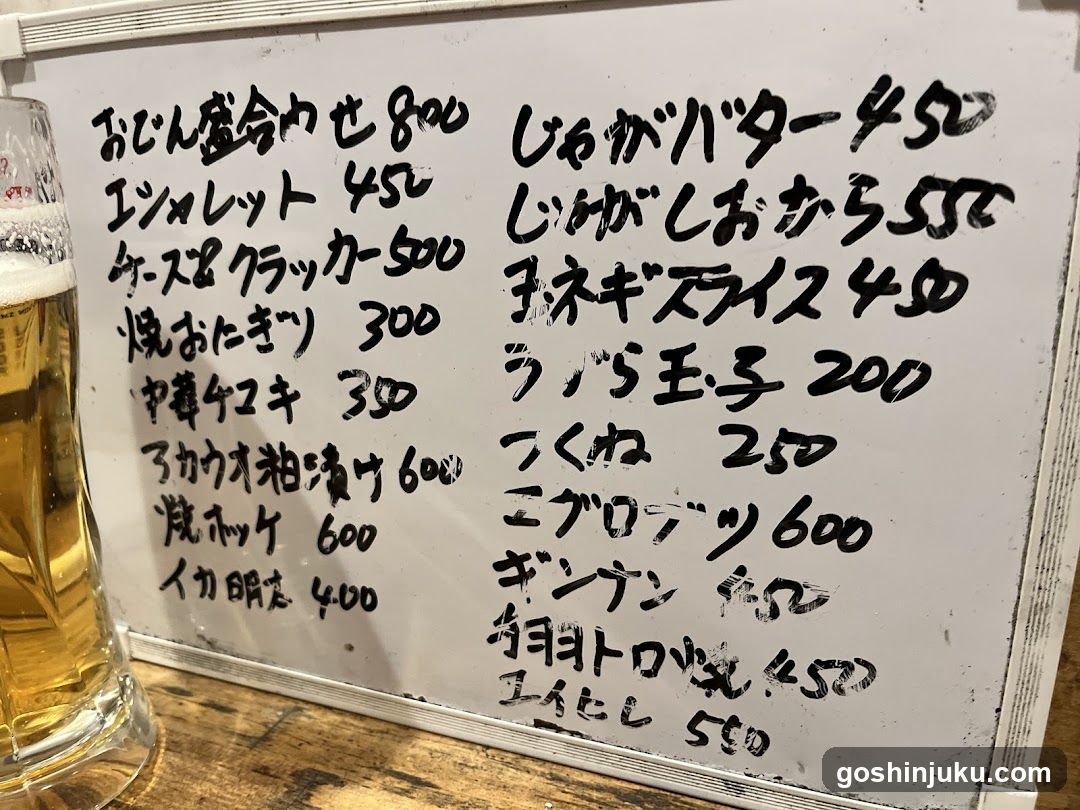 おでん盛合わせ 800
エシャレット 450
チーズ&クラッカー 500
焼おにぎり 300
中華チマキ 350
アカウオ粕漬け 600
焼ホッケ 600
イカ明太 400
じゃがバター 450
じゃがしおから 550
玉ネギスライス 450
うずら玉子 200
つくね 250
マグロブツ 600
ギンナン 450
トロ焼 450
エイヒレ 550
goshinjuku.com